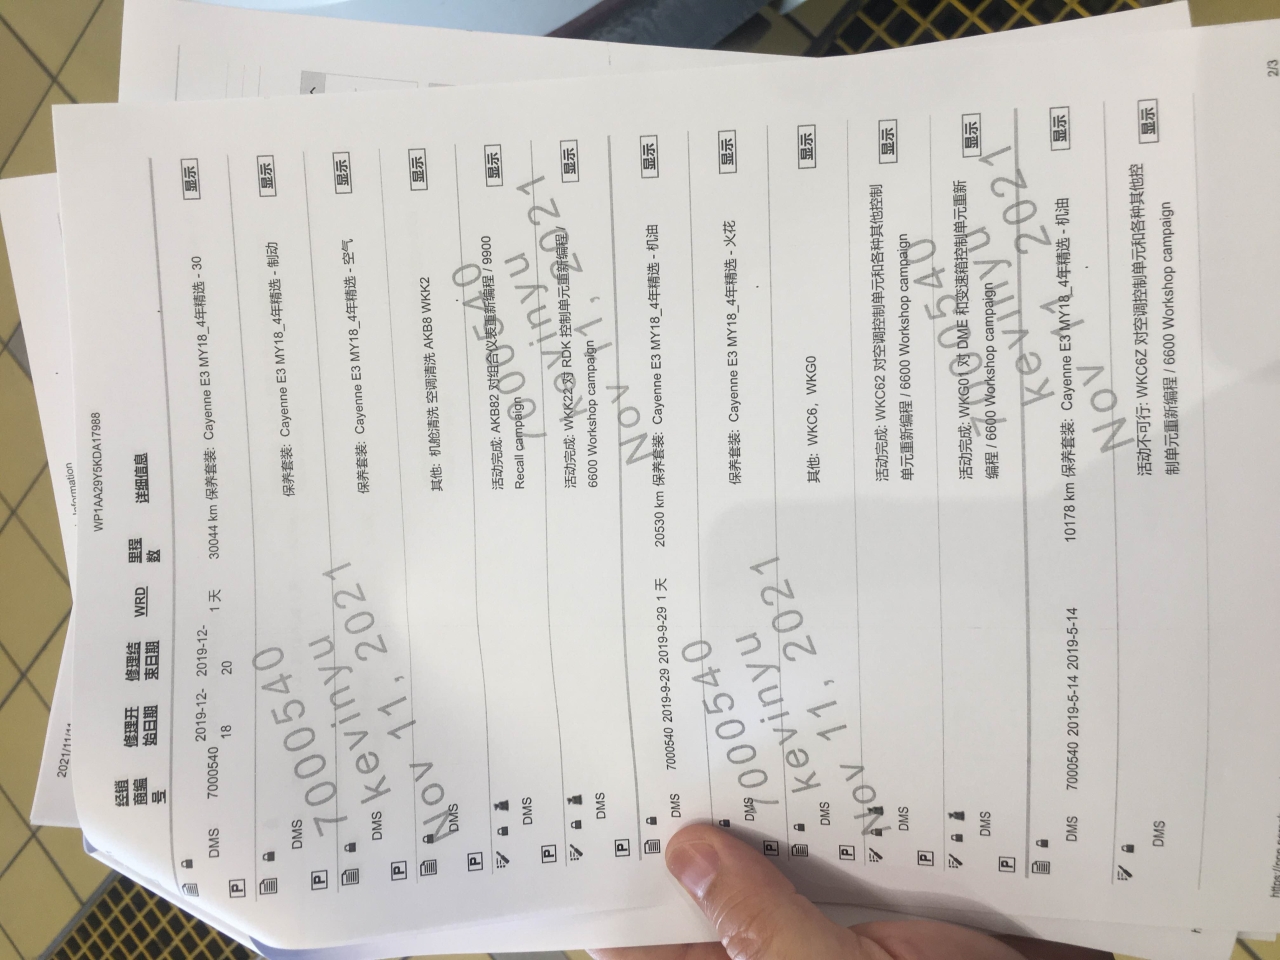 WP1AA29Y5KDA17988
经销商编号 修理开始日期 修理结束日期 WRD 里程数 详细信息
DMS 7000540 2019-12-18 2019-12-20 1 天 30044 km 保养套装: Cayenne E3 MY18_4年精选 - 30 显示
P
DMS 保养套装: Cayenne E3 MY18_4年精选 - 制动 显示
P
DMS 保养套装: Cayenne E3 MY18_4年精选 - 空气 显示
P
DMS 其他: 机舱清洗 空调清洗 AKB8 WKK2 显示
P
DMS 活动完成: AKB82 对组合仪表重新编程 / 9900 显示
Recall campaign
P
DMS 活动完成: WKK22 对 RDK 控制单元重新编程 / 显示
6600 Workshop campaign
P
DMS 7000540 2019-9-29 2019-9-29 1 天 20530 km 保养套装: Cayenne E3 MY18_4年精选 - 机油 显示
DMS 保养套装: Cayenne E3 MY18_4年精选 - 火花 显示
P
DMS 其他: WKC6, WKG0 显示
P
DMS 活动完成: WKC62 对空调控制单元和各种其他控制 显示
单元重新编程 / 6600 Workshop campaign
P
DMS 活动完成: WKG01 对 DME 和变速箱控制单元重新 显示
编程 / 6600 Workshop campaign
P
DMS 7000540 2019-5-14 2019-5-14 10178 km 保养套装: Cayenne E3 MY18_4年精选 - 机油 显示
DMS 活动不可行: WKC6Z 对空调控制单元和各种其他控 显示
制单元重新编程 / 6600 Workshop campaign
2/3
7000540
kevinyu
Nov 11, 2021
7000540
kevinyu
Nov 11, 2021
7000540
kevinyu
Nov 11, 2021
7000540
kevinyu
Nov 11, 2021